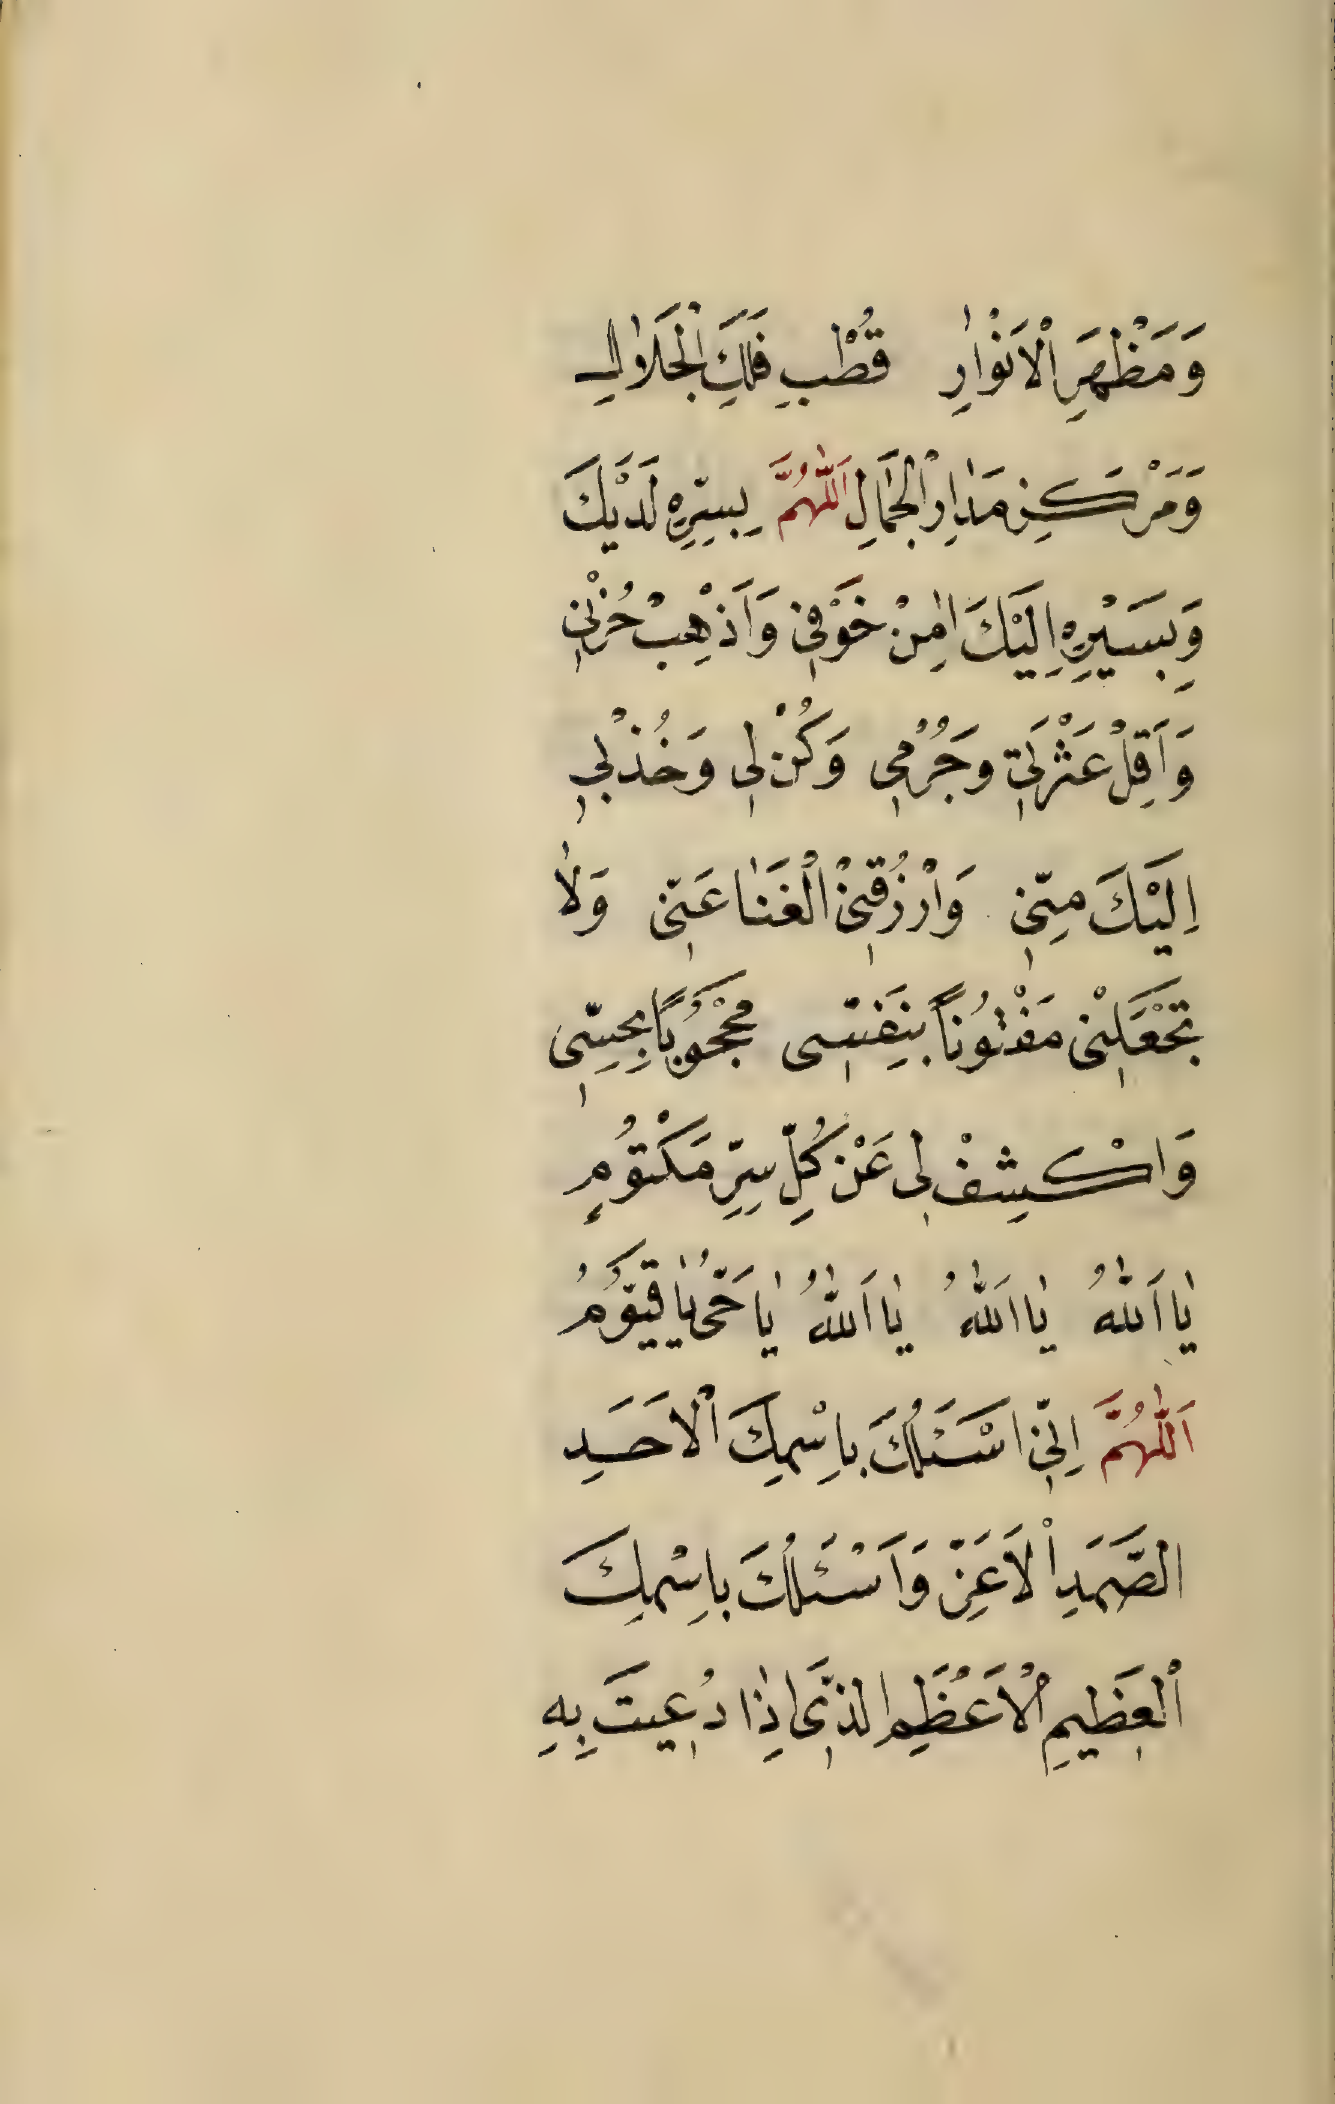 وَمَظْهَرِ الْاَنْوٰارِ قُطْبِ فَلَكِ الْجَلَالِ
وَمَرْكَزِ مَدٰارِ الْجَمٰالِ اَللّٰهُمَّ بِسِرِّهِ لَدَيْكَ
وَبِسَيْرِهِ اِلَيْكَ اٰمِنْ خَوْفِي وَاَذْهِبْ حُزْنِي
وَاَقِلْ عَثْرَتِي وَجُرْمِي وَكُنْ لِي وَخُذْنِي
اِلَيْكَ مِنِّي وَارْزُقْنِي الْفَنٰا عَنِّي وَلٰا
تَجْعَلْنِي مَفْتُونًا بِنَفْسِي مَحْجُوبًا بِحِسِّي
وَاكْشِفْ لِي عَنْ كُلِّ سِرٍّ مَكْتُومٍ
يٰا اَللّٰهُ يٰا اَللّٰهُ يٰا اَللّٰهُ يٰا حَيُّ يٰا قَيُّومُ
اَللّٰهُمَّ اِنِّي اَسْئَلُكَ بِاسْمِكَ الْاَحَدِ
الصَّمَدِ الْاَعَزِّ وَاَسْئَلُكَ بِاسْمِكَ
الْعَظِيمِ الْاَعْظَمِ الَّذِي اِذٰا دُعِيتَ بِهِ